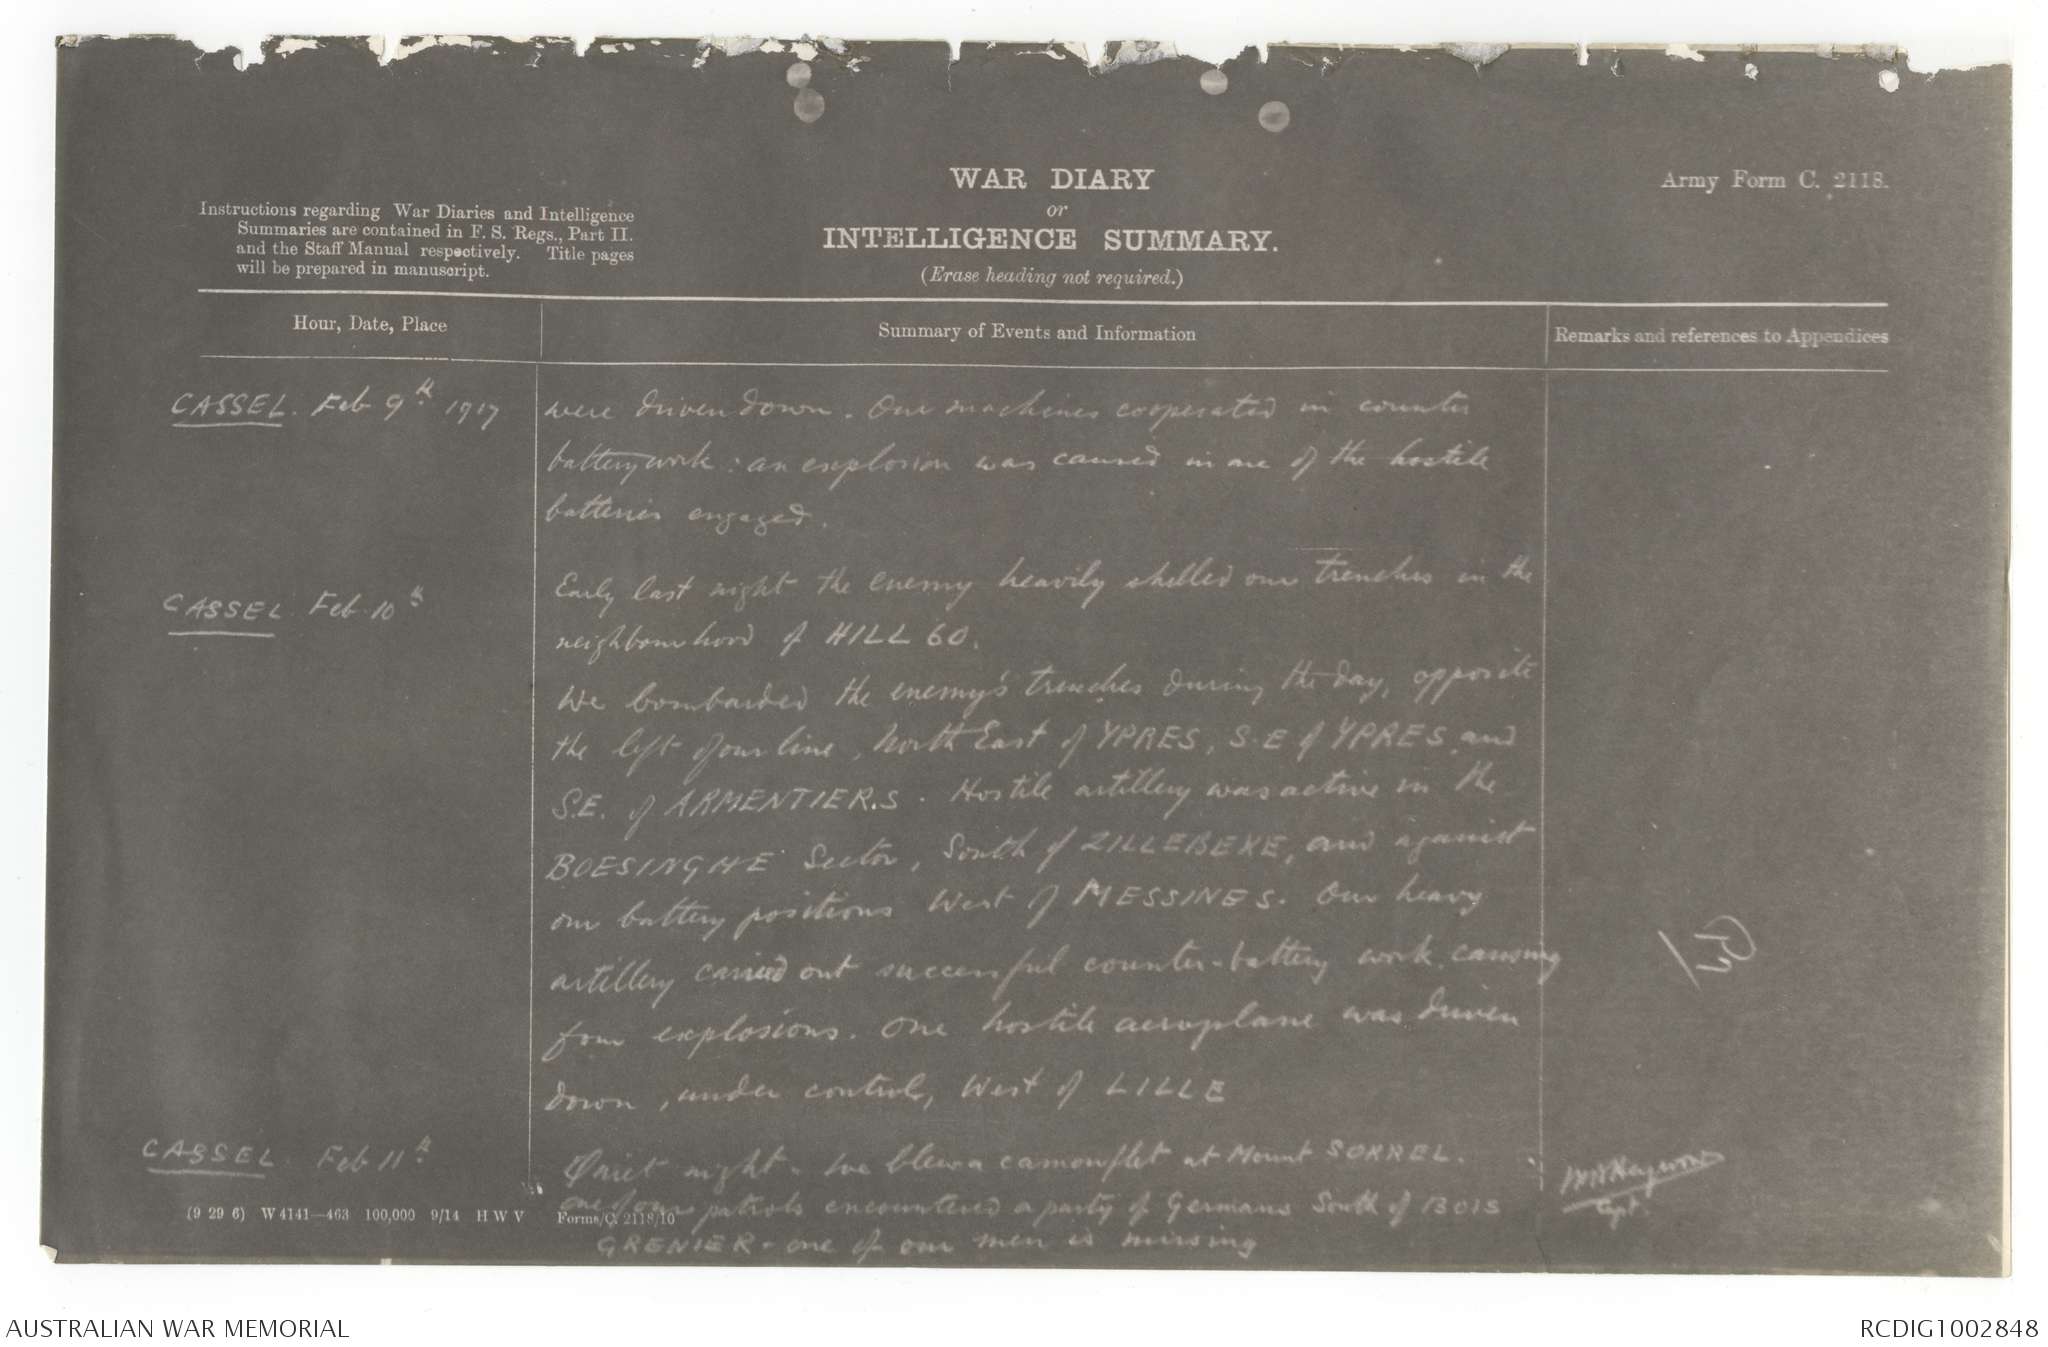 WAR DIARY
or
INTELLIGENCE SUMMARY.
(Erase heading not required.)
Army Form C. 2118.
Instructions regarding War Diaries and Intelligence
Summaries are contained in F. S. Regs., Part II.
and the Staff Manual respectively. Title pages
will be prepared in manuscript.
Hour, Date, Place
Summary of Events and Information
Remarks and references to Appendices
CASSEL. Feb 9th 1917
were driven down. Our machines cooperated in counter
battery work: an explosion was caused in one of the hostile
batteries engaged.
CASSEL. Feb. 10th
Early last night the enemy heavily shelled our trenches in the
neighbourhood of HILL 60.
We bombarded the enemy's trenches during the day, opposite
the left of our line, North East of YPRES, S.E of YPRES, and
S.E. of ARMENTIER.S. Hostile artillery was active in the
BOESINGHE Sector, South of ZILLEBEKE, and against
our battery positions West of MESSINES. Our heavy
artillery carried out successful counter-battery work causing
four explosions. One hostile aeroplane was driven
down, under control, West of LILLE
CASSEL. Feb 11th
Quiet night. We blew a camouflet at Mount SORREL.
One of our patrols encountered a party of Germans South of BOIS
GRENIER - one of our men is missing
Capt.
(9 29 6) W 4141—463 100,000 9/14 H W V Forms/C. 2118/10
AUSTRALIAN WAR MEMORIAL
RCDIG1002848